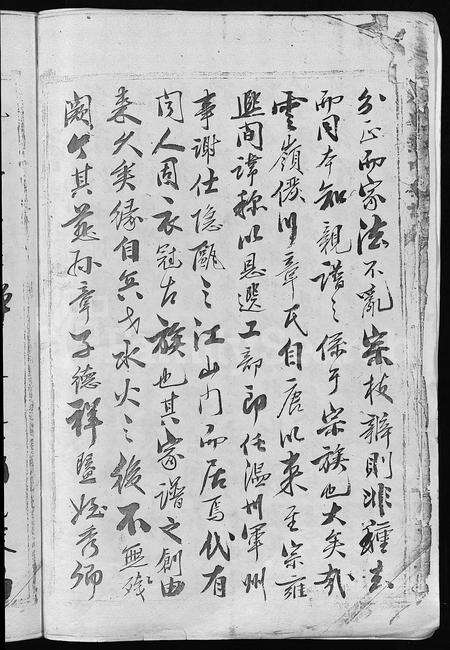 分正而家法不亂宗枝辨則非種去
而同本知親譜之係于宗族也大矣哉
雲嶺後川章氏自唐以來至宗雍
熙間諱稱以恩選工部郎任溫州軍州
事謝仕隱甌之江山門而居焉代有
聞人固衣冠古族也其家譜之創由
來久矣緣自兵戈水火之後不無殘
闕今其慈孫章子德祥暨姪秀卿